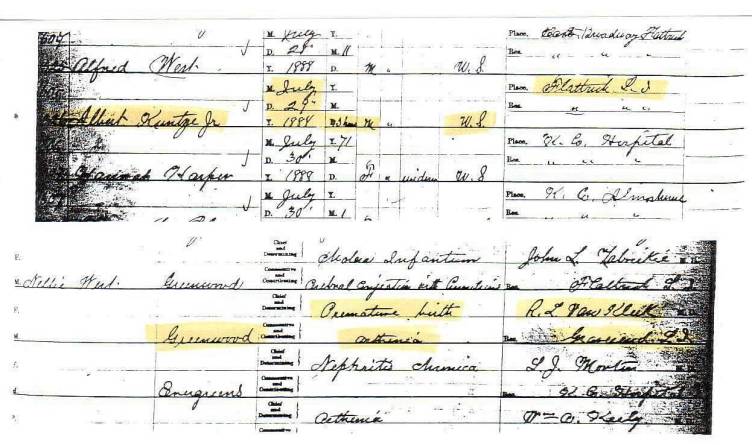 M. July Y. Place. East Broadway Flatbush
D. 29" M. 11 Res. " " "
Alfred West. Y. 1888 D. M " U. S.
M. July Y. Place. Flatbush L. I
D. 29" M. Res. " " "
Albert Kuntze Jr Y. 1888 D. 3 hours M " U. S.
M. July Y. 71 Place. K. Co. Hospital
D. 30" M. Res. " " "
Hannah Harper Y. 1888 D. F " widow U. S
M. July Y. Place. K. C. Almshouse
D. 30" M. 1 Res. " " "
F. Chief and Determining Cholera Infantum John L. M.D.
M. Nellie West. Greenwood Consecutive and Contributing Cerebral Congestion with Res. Flatbush L. I.
F. Chief and Determining Premature birth R. L Van Kleek M.D.
M. Greenwood Consecutive and Contributing asthenia Res. Gravesend L. I.
F. Chief and Determining Nephritis chronica L. J. Morton
M. Evergreens Consecutive and Contributing Res. K. Co. Hospital
F. Chief and Determining asthenia
Consecutive